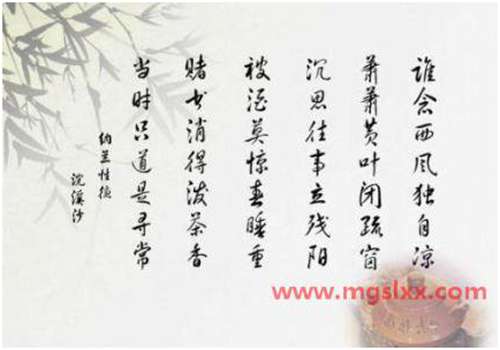 谁念西风独自凉
萧萧黄叶闭疏窗
沉思往事立残阳
被酒莫惊春睡重
赌书消得泼茶香
当时只道是寻常
纳兰性德
浣溪沙
www.mgslxx.com